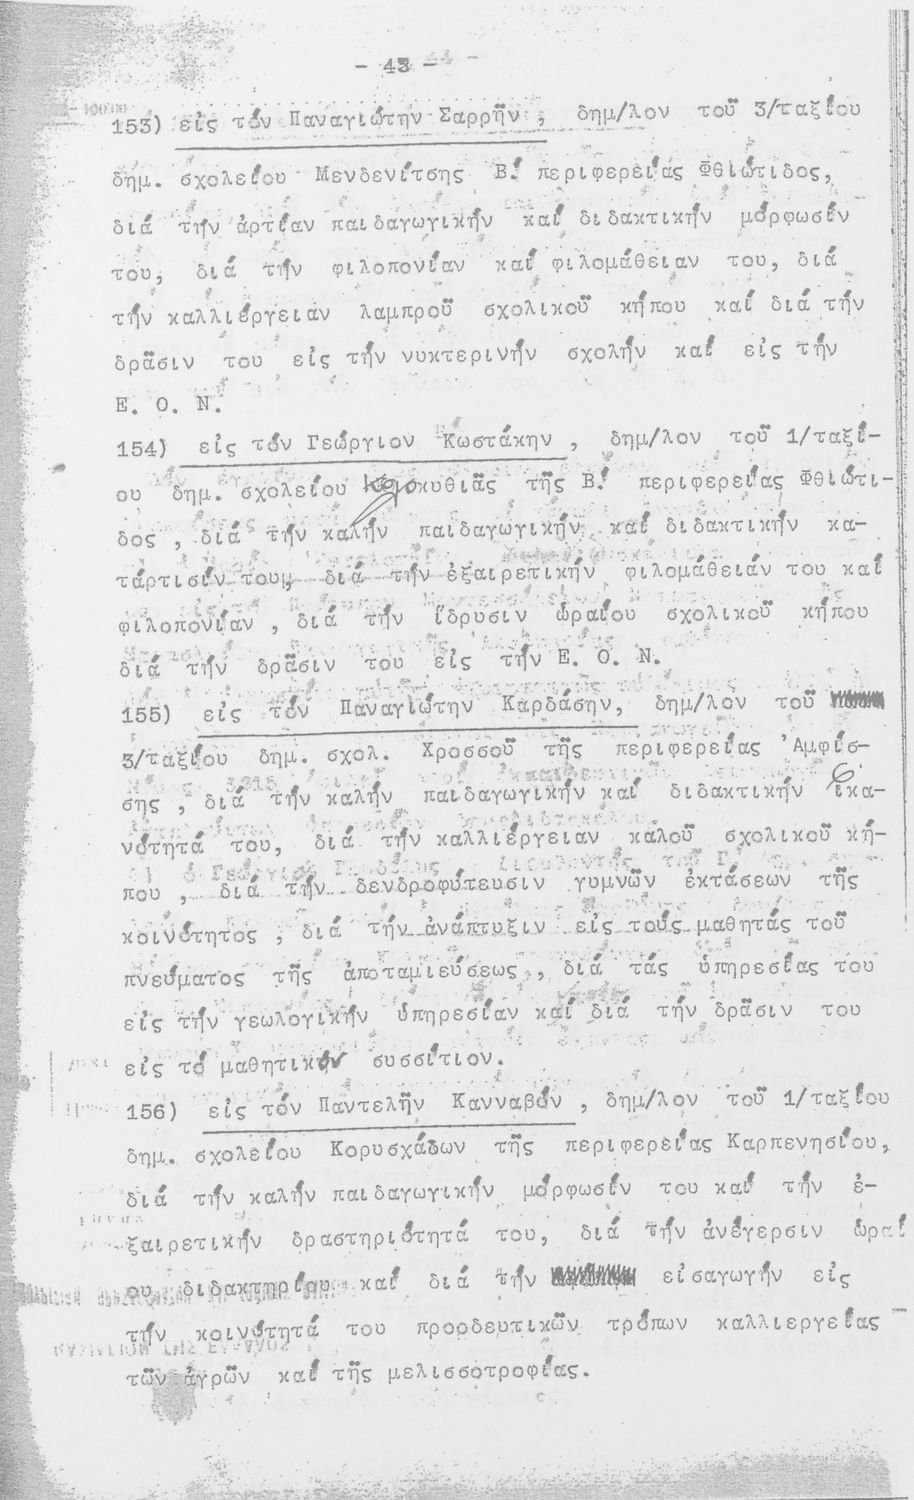 - 43 -
153) εἰς τόν Παναγιώτην Σαρρῆν , δημ/λον τοῦ 3/ταξίου
δημ. σχολείου Μενδενίτσης Β! περιφερείας Φθιώτιδος,
διά την ἀρτίαν παιδαγωγικήν καί διδακτικήν μόρφωσίν
του, διά τήν φιλοπονίαν καί φιλομάθειαν του, διά
τήν καλλιέργειαν λαμπροῦ σχολικοῦ κήπου καί διά τήν
δρᾶσιν του εἰς τήν νυκτερινήν σχολήν καί εἰς τήν
Ε. Ο. Ν.
154) εἰς τόν Γεώργιον Κωστάκην , δημ/λον τοῦ 1/ταξί-
ου δημ. σχολείου τῆς Β! περιφερείας Φθιώτι-
δος , διά τήν καλήν παιδαγωγικήν καί διδακτικήν κα-
τάρτισίν του, διά τήν ἐξαιρετικήν φιλομάθειάν του καί
φιλοπονίαν , διά τήν ἵδρυσιν ὡραίου σχολικοῦ κήπου
διά τήν δρᾶσιν του εἰς τήν Ε. Ο. Ν.
155) εἰς τόν Παναγιώτην Καρδάσην, δημ/λον τοῦ
3/ταξίου δημ. σχολ. Χροσσοῦ τῆς περιφερείας Ἀμφίσ-
σης , διά τήν καλήν παιδαγωγικήν καί διδακτικήν ἱκα-
νότητά του, διά τήν καλλιέργειαν καλοῦ σχολικοῦ κή-
που , διά τήν δενδροφύτευσιν γυμνῶν ἐκτάσεων τῆς
κοινότητος , διά τήν ἀνάπτυξιν εἰς τούς μαθητάς τοῦ
πνεύματος τῆς ἀποταμιεύσεως , διά τάς ὑπηρεσίας του
εἰς τήν γεωλογικήν ὑπηρεσίαν καί διά τήν δρᾶσιν του
εἰς τό μαθητικόν συσσίτιον.
156) εἰς τόν Παντελῆν Κανναβόν , δημ/λον τοῦ 1/ταξίου
δημ. σχολείου Κορυσχάδων τῆς περιφερείας Καρπενησίου,
διά τήν καλήν παιδαγωγικήν μόρφωσίν του καί τήν ἐ-
ξαιρετικήν δραστηριότητά του, διά τήν ἀνέγερσιν ὡραί
ου διδακτηρίου καί διά τήν εἰσαγωγήν εἰς
τήν κοινότητά του προοδευτικῶν τρόπων καλλιεργείας
τῶν ἀγρῶν καί τῆς μελισσοτροφίας.